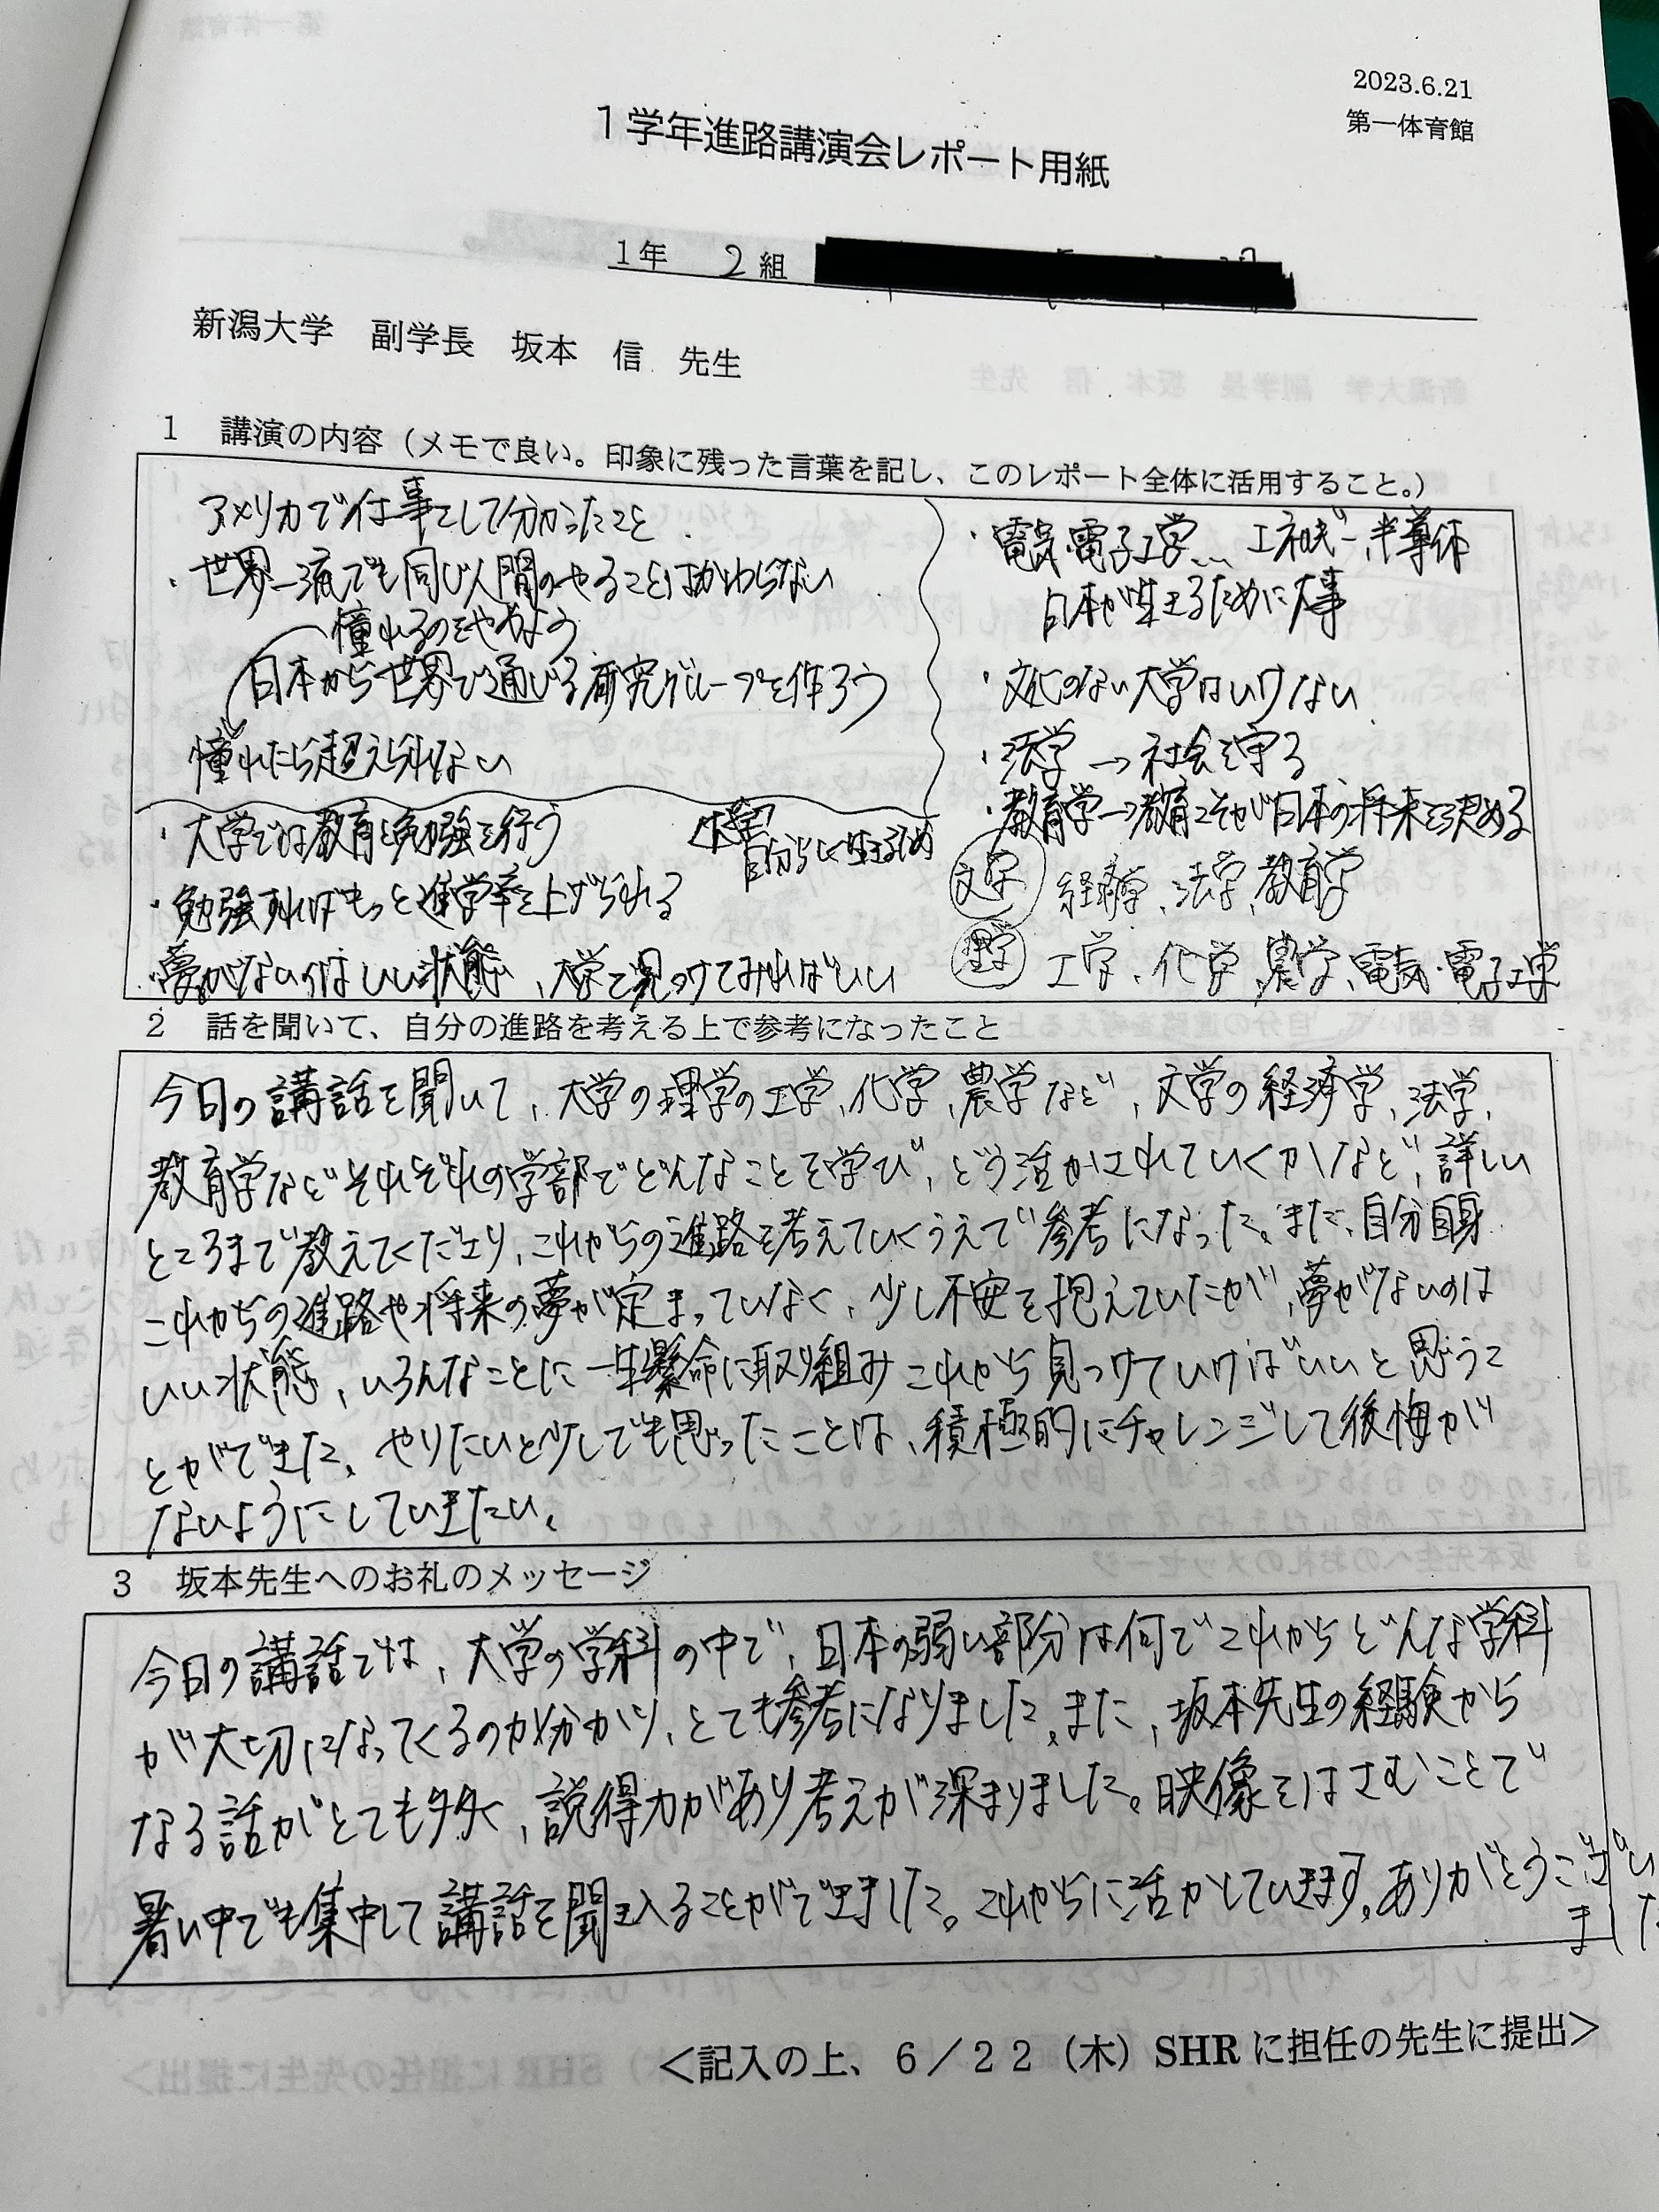 2023.6.21
第一体育館
1学年進路講演会レポート用紙
1年 2組
新潟大学 副学長 坂本 信 先生
1 講演の内容（メモで良い。印象に残った言葉を記し、このレポート全体に活用すること。）
アメリカで仕事をして分かったこと
・世界一流でも同じ人間のやることはかわらない
憧れるのをやめよう
日本から世界に通じる研究グループを作ろう
憧れたら超えられない
・大学では教育と勉強を行う
自分らしく生きるため
・勉強すればもっと進学率を上げられる
・夢がないのはいい状態、大学で見つけてみればいい
・電気・電子工学… エネルギー、半導体
日本が生きるために大事
・文化のない大学はいけない
・法学→社会を守る
・教育学→教育こそが日本の将来を決める
文学 経済学、法学、教育学
理学 工学、化学、農学、電気・電子工学
2 話を聞いて、自分の進路を考える上で参考になったこと
今日の講話を聞いて、大学の理学の工学、化学、農学など、文学の経済学、法学、
教育学などそれぞれの学部でどんなことを学び、どう活かされていくかなど、詳しい
ところまで教えてくださり、これからの進路を考えていくうえで参考になった。また、自分自身
これからの進路や将来の夢が定まっていなく、少し不安を抱えていたが、夢がないのは
いい状態、いろんなことに一生懸命に取り組みこれから見つけていけばいいと思うこ
とができた。やりたいと少しでも思ったことは、積極的にチャレンジして後悔が
ないようにしていきたい。
3 坂本先生へのお礼のメッセージ
今日の講話では、大学の学科の中で、日本の弱い部分は何でこれからどんな学科
が大切になってくるのかが分かり、とても参考になりました。また、坂本先生の経験から
なる話がとても多く、説得力があり考えが深まりました。映像をはさむことで
暑い中でも集中して講話を聞き入ることができました。これからに活かしていきます。ありがとうござい
ました
＜記入の上、6／22（木）SHRに担任の先生に提出＞